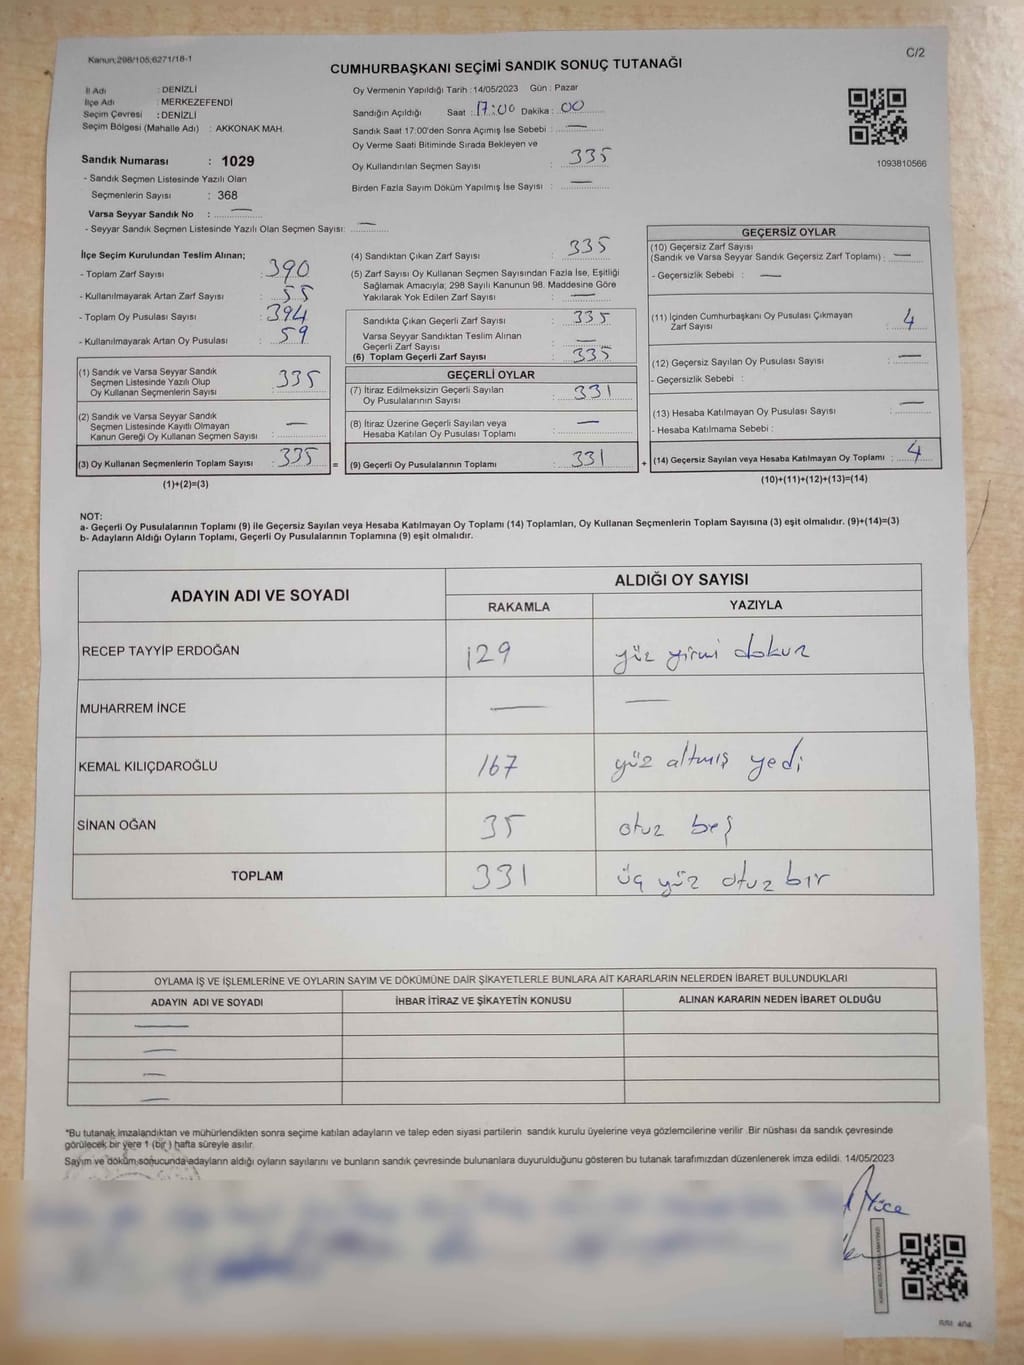 Kanun;298/105;6271/18-1
C/2
CUMHURBAŞKANI SEÇİMİ SANDIK SONUÇ TUTANAĞI
İl Adı : DENİZLİ
İlçe Adı : MERKEZEFENDİ
Seçim Çevresi : DENİZLİ
Seçim Bölgesi (Mahalle Adı) : AKKONAK MAH.
Sandık Numarası : 1029
- Sandık Seçmen Listesinde Yazılı Olan
Seçmenlerin Sayısı : 368
Varsa Seyyar Sandık No : —
- Seyyar Sandık Seçmen Listesinde Yazılı Olan Seçmen Sayısı: —
Oy Vermenin Yapıldığı Tarih : 14/05/2023 Gün : Pazar
Sandığın Açıldığı Saat : 17:00 Dakika : 00
Sandık Saat 17:00'den Sonra Açımış İse Sebebi : —
Oy Verme Saati Bitiminde Sırada Bekleyen ve
Oy Kullandırılan Seçmen Sayısı : 335
Birden Fazla Sayım Döküm Yapılmış İse Sayısı : —
1093810566
İlçe Seçim Kurulundan Teslim Alınan;
- Toplam Zarf Sayısı : 390
- Kullanılmayarak Artan Zarf Sayısı : 55
- Toplam Oy Pusulası Sayısı : 394
- Kullanılmayarak Artan Oy Pusulası : 59
(1) Sandık ve Varsa Seyyar Sandık
Seçmen Listesinde Yazılı Olup
Oy Kullanan Seçmenlerin Sayısı : 335
(2) Sandık ve Varsa Seyyar Sandık
Seçmen Listesinde Kayıtlı Olmayan
Kanun Gereği Oy Kullanan Seçmen Sayısı : —
(3) Oy Kullanan Seçmenlerin Toplam Sayısı : 335
(1)+(2)=(3)
(4) Sandıktan Çıkan Zarf Sayısı : 335
(5) Zarf Sayısı Oy Kullanan Seçmen Sayısından Fazla İse, Eşitliği
Sağlamak Amacıyla; 298 Sayılı Kanunun 98. Maddesine Göre
Yakılarak Yok Edilen Zarf Sayısı : —
Sandıkta Çıkan Geçerli Zarf Sayısı : 335
Varsa Seyyar Sandıktan Teslim Alınan
Geçerli Zarf Sayısı : —
(6) Toplam Geçerli Zarf Sayısı : 335
GEÇERLİ OYLAR
(7) İtiraz Edilmeksizin Geçerli Sayılan
Oy Pusulalarının Sayısı : 331
(8) İtiraz Üzerine Geçerli Sayılan veya
Hesaba Katılan Oy Pusulası Toplamı : —
= (9) Geçerli Oy Pusulalarının Toplamı : 331
GEÇERSİZ OYLAR
(10) Geçersiz Zarf Sayısı
(Sandık ve Varsa Seyyar Sandık Geçersiz Zarf Toplamı) : —
- Geçersizlik Sebebi : —
(11) İçinden Cumhurbaşkanı Oy Pusulası Çıkmayan
Zarf Sayısı : 4
(12) Geçersiz Sayılan Oy Pusulası Sayısı : —
- Geçersizlik Sebebi :
(13) Hesaba Katılmayan Oy Pusulası Sayısı : —
- Hesaba Katılmama Sebebi :
+ (14) Geçersiz Sayılan veya Hesaba Katılmayan Oy Toplamı : 4
(10)+(11)+(12)+(13)=(14)
NOT:
a- Geçerli Oy Pusulalarının Toplamı (9) ile Geçersiz Sayılan veya Hesaba Katılmayan Oy Toplamı (14) Toplamları, Oy Kullanan Seçmenlerin Toplam Sayısına (3) eşit olmalıdır. (9)+(14)=(3)
b- Adayların Aldığı Oyların Toplamı, Geçerli Oy Pusulalarının Toplamına (9) eşit olmalıdır.
ADAYIN ADI VE SOYADI
ALDIĞI OY SAYISI
RAKAMLA YAZIYLA
RECEP TAYYİP ERDOĞAN 129 yüz yirmi dokuz
MUHARREM İNCE — —
KEMAL KILIÇDAROĞLU 167 yüz altmış yedi
SİNAN OĞAN 35 otuz beş
TOPLAM 331 üç yüz otuz bir
OYLAMA İŞ VE İŞLEMLERİNE VE OYLARIN SAYIM VE DÖKÜMÜNE DAİR ŞİKAYETLERLE BUNLARA AİT KARARLARIN NELERDEN İBARET BULUNDUKLARI
ADAYIN ADI VE SOYADI İHBAR İTİRAZ VE ŞİKAYETİN KONUSU ALINAN KARARIN NEDEN İBARET OLDUĞU
—
—
—
—
*Bu tutanak imzalandıktan ve mühürlendikten sonra seçime katılan adayların ve talep eden siyasi partilerin sandık kurulu üyelerine veya gözlemcilerine verilir. Bir nüshası da sandık çevresinde
görülecek bir yere 1 (bir ) hafta süreyle asılır.
Sayım ve döküm sonucunda adayların aldığı oyların sayılarını ve bunların sandık çevresinde bulunanlara duyurulduğunu gösteren bu tutanak tarafımızdan düzenlenerek imza edildi. 14/05/2023